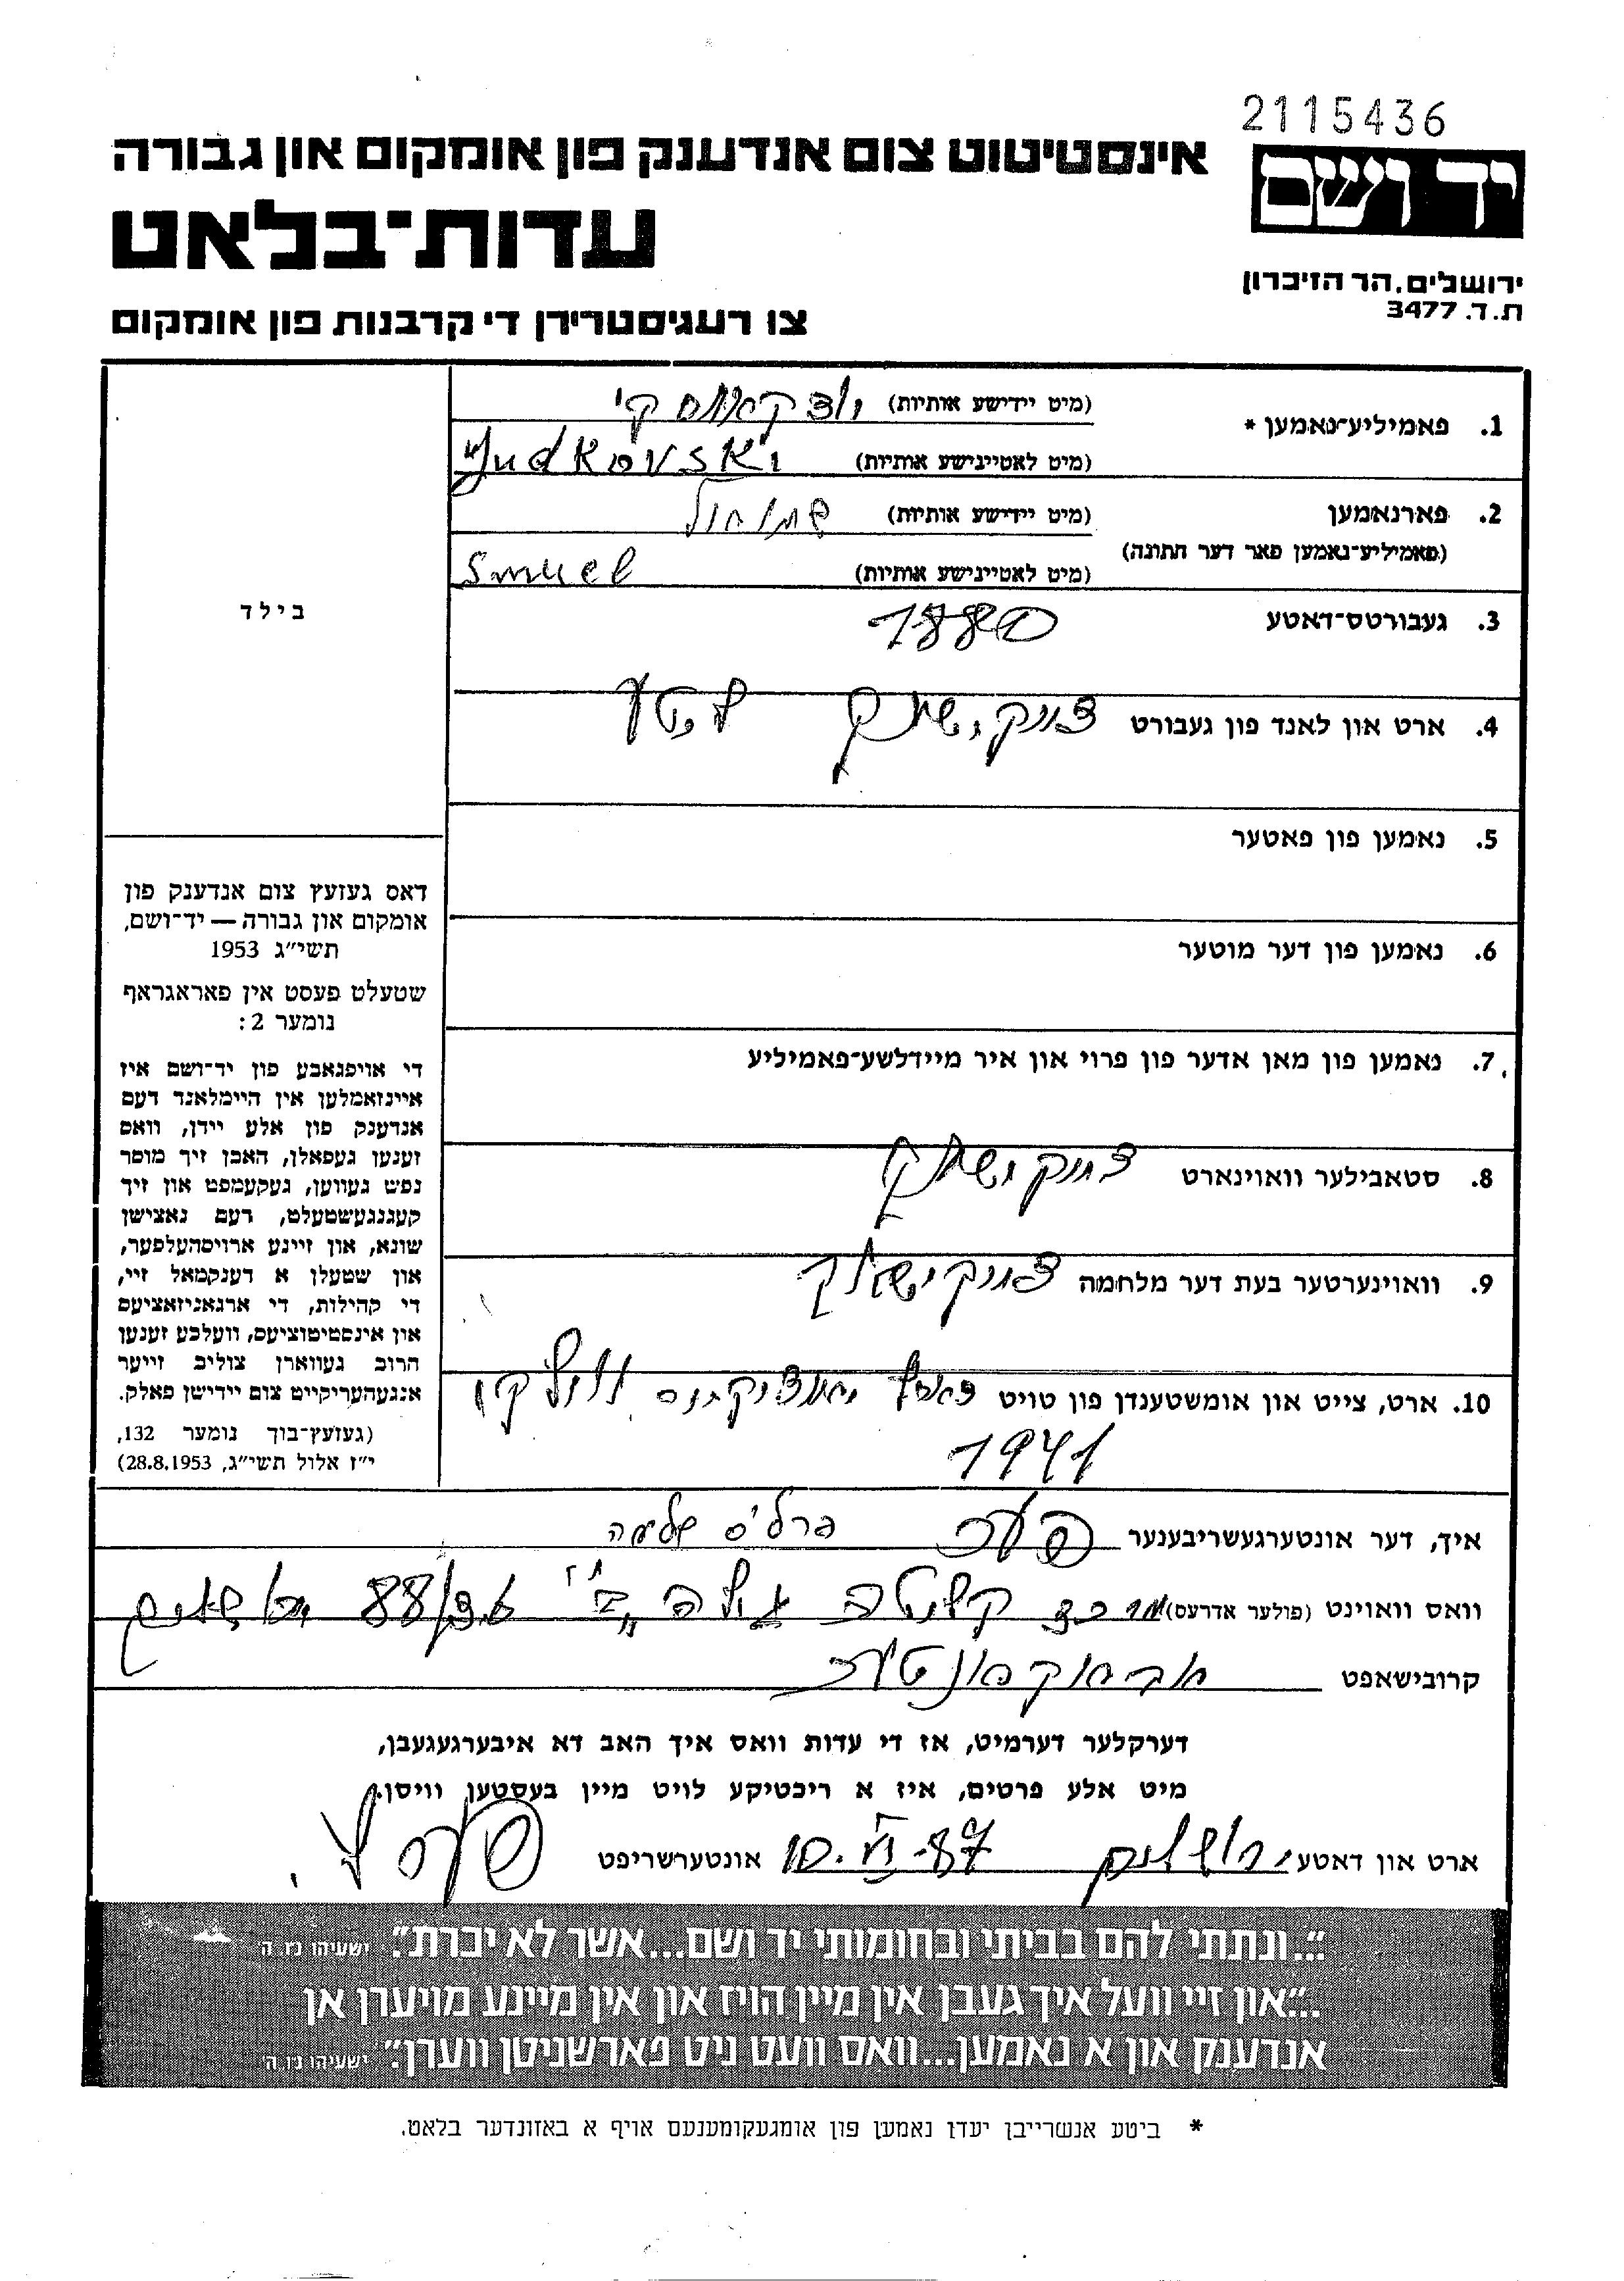 2115436
יד ושם
אינסטיטוט צום אנדענק פון אומקום און גבורה
עדות-בלאט
ירושלים, הר הזיכרון
ת.ד. 3477
צו רעגיסטרירן די קרבנות פון אומקום
1. פאמיליע-נאמען *
(מיט יידישע אותיות) יודקאווסקי
(מיט לאטיינישע אותיות) Judkovski
2. פארנאמען
(פאמיליע-נאמען פאר דער חתונה)
(מיט יידישע אותיות) שמואל
(מיט לאטיינישע אותיות) Smuel
3. געבורטס-דאטע 1880
4. ארט און לאנד פון געבורט ליטע
5. נאמען פון פאטער
6. נאמען פון דער מוטער
7. נאמען פון מאן אדער פון פרוי און איר מיידלשע-פאמיליע
8. סטאבילער וואוינארט
9. וואוינערטער בעת דער מלחמה
10. ארט, צייט און אומשטענדן פון טויט
1941
בילד
דאס געזעץ צום אנדענק פון
אומקום און גבורה — יד-ושם,
תשי״ג 1953
שטעלט פעסט אין פאראגראף
נומער 2:
די אויפגאבע פון יד-ושם איז
איינזאמלען אין היימלאנד דעם
אנדענק פון אלע יידן, וואס
זענען געפאלן, האבן זיך מוסר
נפש געווען, געקעמפט און זיך
קעגנגעשטעלט, דעם נאצישן
שונא, און זיינע ארויסהעלפער,
און שטעלן א דענקמאל זיי,
די קהילות, די ארגאניזאציעס
און אינסטיטוציעס, וועלכע זענען
הרוב געווארן צוליב זייער
אנגעהעריקייט צום יידישן פאלק.
(געזעץ-בוך נומער 132,
י״ז אלול תשי״ג, 28.8.1953)
איך, דער אונטערגעשריבענער פרלס שלמה
וואס וואוינט (פולער אדרעס) מרכז קליטה גילה 88 ירושלים
קרובישאפט
דערקלער דערמיט, אז די עדות וואס איך האב דא איבערגעגעבן,
מיט אלע פרטים, איז א ריכטיקע לויט מיין בעסטען וויסן.
ארט און דאטע ירושלים 10.VI.87 אונטערשריפט
"...ונתתי להם בביתי ובחומותי יד ושם...אשר לא יכרת". ישעיהו נ״ו ה
"...און זיי וועל איך געבן אין מיין הויז און אין מיינע מויערן אן
אנדענק און א נאמען...וואס וועט ניט פארשניטן ווערן". ישעיהו נ״ו ה׳
* ביטע אנשרייבן יעדן נאמען פון אומגעקומענעם אויף א באזונדער בלאט.